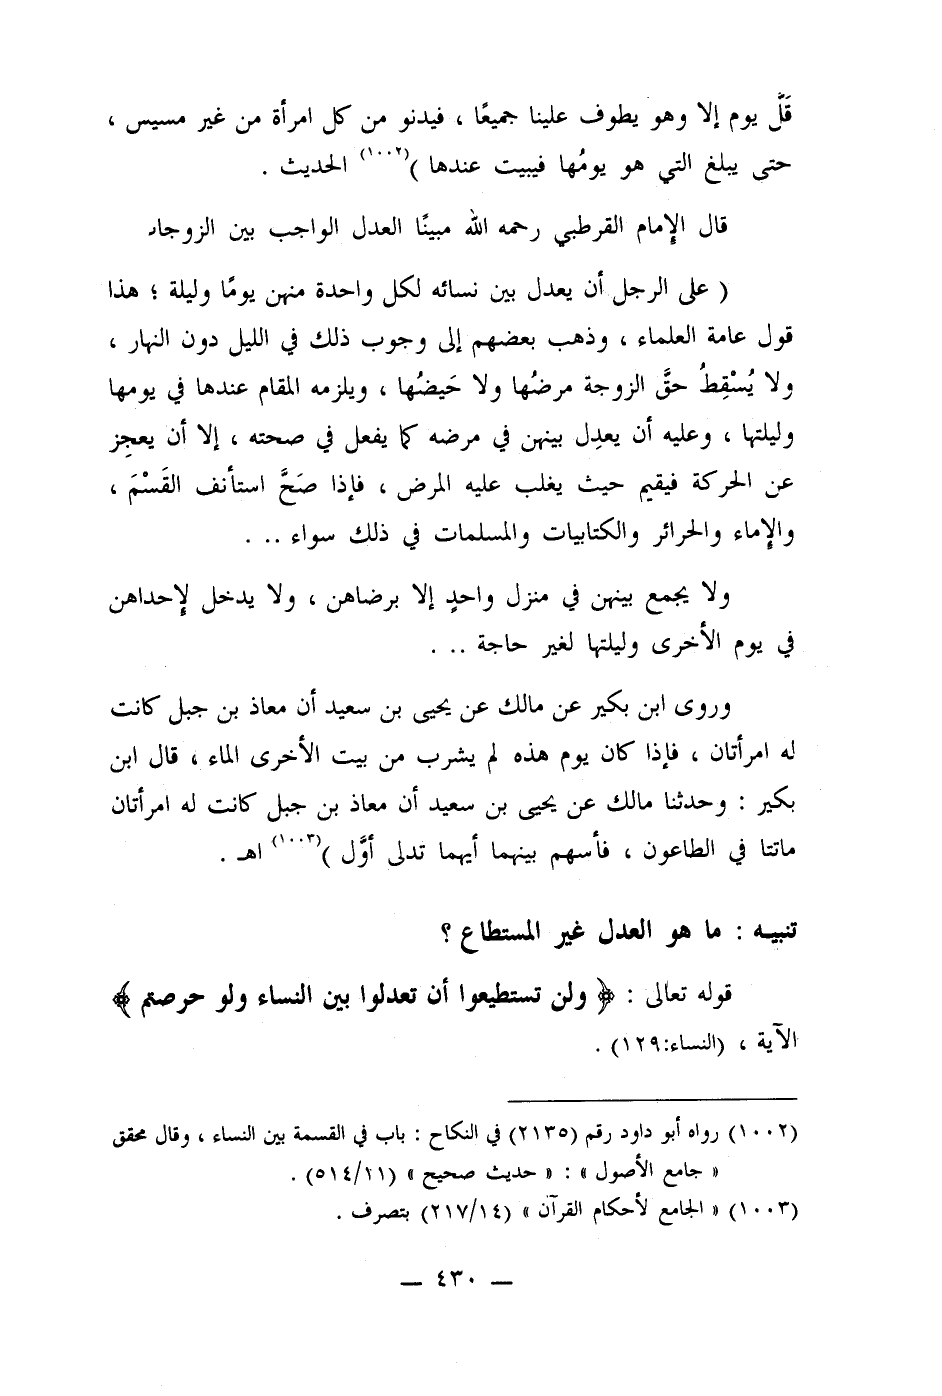 قَلَّ يوم إلا وهو يطوف علينا جميعًا ، فيدنو من كل امرأة من غير مسيس ،
حتى يبلغ التي هو يومُها فيبيت عندها )(١٠٠٢) الحديث .
قال الإمام القرطبي رحمه الله مبينًا العدل الواجب بين الزوجات
( على الرجل أن يعدل بين نسائه لكل واحدة منهن يومًا وليلة ؛ هذا
قول عامة العلماء ، وذهب بعضهم إلى وجوب ذلك في الليل دون النهار ،
ولا يُسْقِطُ حقَّ الزوجة مرضُها ولا حَيضُها ، ويلزمه المقام عندها في يومها
وليلتها ، وعليه أن يعدِل بينهن في مرضه كما يفعل في صحته ، إلا أن يعجِز
عن الحركة فيقيم حيث يغلب عليه المرض ، فإذا صَحَّ استأنف القَسْمَ ،
والإماء والحرائر والكتابيات والمسلمات في ذلك سواء .. .
ولا يجمع بينهن في منزل واحدٍ إلا برضاهن ، ولا يدخل لإحداهن
في يوم الأخرى وليلتها لغير حاجة .. .
وروى ابن بكير عن مالك عن يحيى بن سعيد أن معاذ بن جبل كانت
له امرأتان ، فإذا كان يوم هذه لم يشرب من بيت الأخرى الماء ، قال ابن
بكير : وحدثنا مالك عن يحيى بن سعيد أن معاذ بن جبل كانت له امرأتان
ماتتا في الطاعون ، فأسهم بينهما أيهما تدلى أوَّل )(١٠٠٣) اهـ .
تنبيه : ما هو العدل غير المستطاع ؟
قوله تعالى : ﴿ ولن تستطيعوا أن تعدلوا بين النساء ولو حرصتم ﴾
الآية ، (النساء:١٢٩) .
(١٠٠٢) رواه أبو داود رقم (٢١٣٥) في النكاح : باب في القسمة بين النساء ، وقال محقق
« جامع الأصول » : « حديث صحيح » (٥١٤/١١) .
(١٠٠٣) « الجامع لأحكام القرآن » (٢١٧/١٤) بتصرف .
— ٤٣٠ —